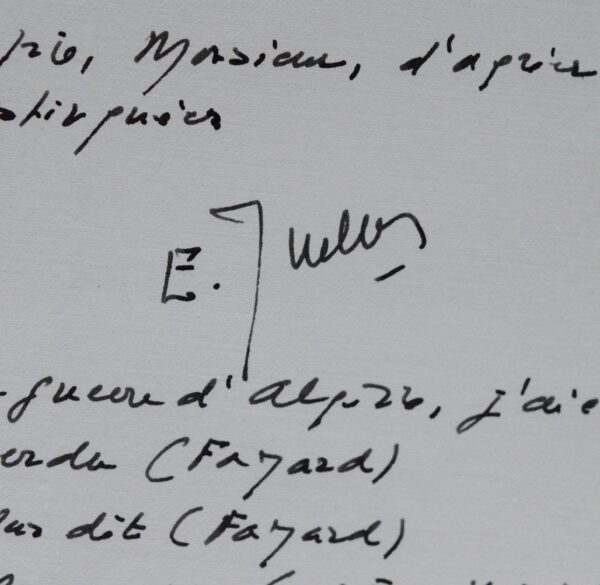 prie, Monsieur, d'agréer
stinguées
E.
guerre d'Algérie, j'ai
erdu (Fayard)
pas dit (Fayard)